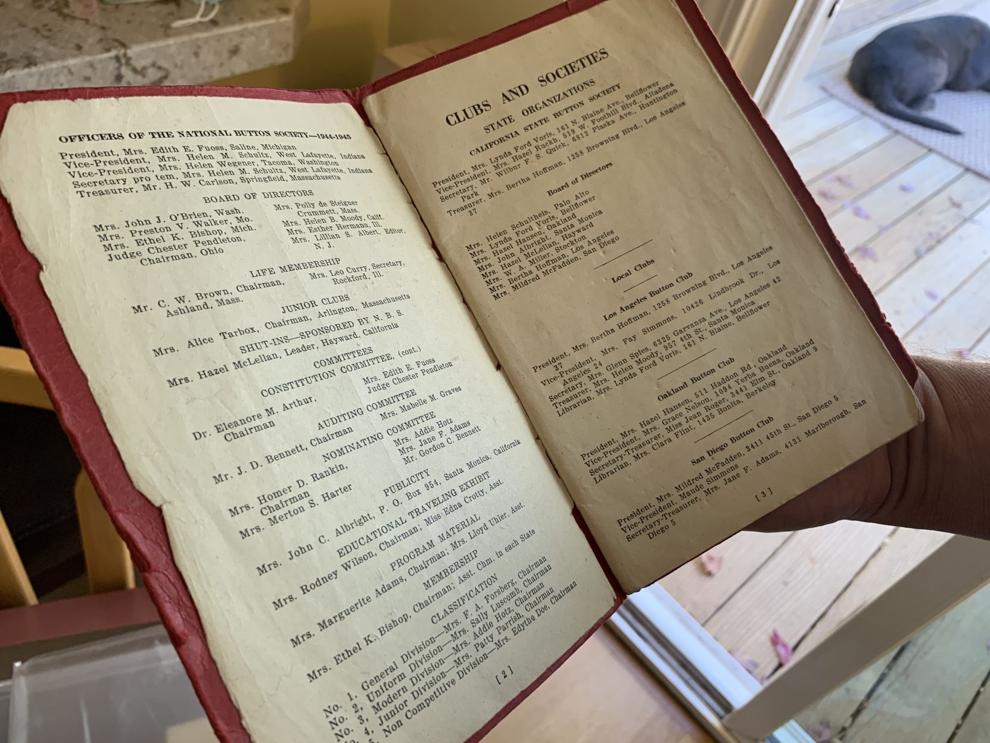 OFFICERS OF THE NATIONAL BUTTON SOCIETY—1944-1945
President, Mrs. Edith E. Fuoss, Saline, Michigan
Vice-President, Mrs. Helen M. Schultz, West Lafayette, Indiana
Vice-President, Mrs. Helen Wegener, Tacoma, Washington
Secretary pro tem, Mrs. Helen M. Schultz, West Lafayette, Indiana
Treasurer, Mr. H. W. Carlson, Springfield, Massachusetts
BOARD OF DIRECTORS
Mrs. John J. O'Brien, Wash.
Mrs. Preston V. Walker, Mo.
Mrs. Ethel K. Bishop, Mich.
Judge Chester Pendleton,
Chairman, Ohio
Mrs. Polly de Steiguer
Crummett, Mass.
Mrs. Helen B. Moody, Calif.
Mrs. Esther Hermans, Ill.
Mrs. Lillian S. Albert, Editor,
N. J.
LIFE MEMBERSHIP
Mr. C. W. Brown, Chairman,
Ashland, Mass.
Mrs. Leo Curry, Secretary,
Rockford, Ill.
JUNIOR CLUBS
Mrs. Alice Tarbox, Chairman, Arlington, Massachusetts
SHUT-INS—SPONSORED BY N. B. S.
Mrs. Hazel McLellan, Leader, Hayward, California
COMMITTEES
CONSTITUTION COMMITTEE, (cont.)
Dr. Eleanore M. Arthur,
Chairman
Mrs. Edith E. Fuoss
Judge Chester Pendleton
AUDITING COMMITTEE
Mr. J. D. Bennett, Chairman
Mrs. Mabelle M. Graves
NOMINATING COMMITTEE
Mrs. Homer D. Rankin,
Chairman
Mrs. Merton S. Harter
Mrs. Addie Hotz
Mrs. Jane F. Adams
Mr. Gordon C. Bennett
PUBLICITY
Mr. John C. Albright, P. O. Box 954, Santa Monica, California
EDUCATIONAL TRAVELING EXHIBIT
Mrs. Rodney Wilson, Chairman; Miss Edna Crotty, Asst.
PROGRAM MATERIAL
Mrs. Marguerite Adams, Chairman; Mrs. Lloyd Uhler, Asst.
MEMBERSHIP
Mrs. Ethel K. Bishop, Chairman; Asst. Chm. in each State
CLASSIFICATION
No. 1. General Division—Mrs. F. A. Forsberg, Chairman
No. 2. Uniform Division—Mrs. Sally Luscomb, Chairman
No. 3. Modern Division—Mrs. Addie Hotz, Chairman
No. 4. Junior Division—Mrs. Patty Parrish, Chairman
5. Non Competitive Division—Mrs. Edythe Doe, Chairman
[ 2 ]
CLUBS AND SOCIETIES
STATE ORGANIZATIONS
CALIFORNIA STATE BUTTON SOCIETY
President, Mrs. Lynda Ford Voris, 161 N. Blaine Ave., Bellflower
Vice-President, Mrs. Hazel Ruckh, 519 W. Foothill Blvd., Altadena
Secretary, Mr. Wilbur F. S. Quick, 6612 Plaska Ave., Huntington
Park
Treasurer, Mrs. Bertha Hoffman, 1258 Browning Blvd., Los Angeles
37
Board of Directors
Mrs. Helen Schultheis, Palo Alto
Mrs. Lynda Ford Voris, Bellflower
Mrs. Hazel Hansen, Oakland
Mrs. John Albright, Santa Monica
Mrs. Hazel McLellan, Hayward
Mrs. W. A. Miller, Stockton
Mrs. Bertha Hoffman, Los Angeles
Mrs. Mildred McFadden, San Diego
Local Clubs
Los Angeles Button Club
President, Mrs. Bertha Hoffman, 1258 Browning Blvd., Los Angeles
37
Vice-President, Mrs. Fay Simmons, 10426 Lindbrook Dr., Los
Angeles 24
Secretary, Mrs. Glenn Spies, 6325 Garvanza Ave., Los Angeles 42
Treasurer, Mrs. Helen Moody, 957 4th St., Santa Monica
Librarian, Mrs. Lynda Ford Voris, 161 N. Blaine, Bellflower
Oakland Button Club
President, Mrs. Hazel Hansen, 5111 Haddon Rd., Oakland
Vice-President, Mrs. Grace Nelson, 1094 Yerba Buena, Oakland
Secretary-Treasurer, Miss Jean Roger, 3441 Elm St., Oakland 9
Librarian, Mrs. Clara Flint, 1435 Bonita, Berkeley
San Diego Button Club
President, Mrs. Mildred McFadden, 3411 45th St., San Diego 5
Vice-President, Maude Simmons
Secretary-Treasurer, Mrs. Jane F. Adams, 4131 Marlborough, San
Diego 5
[ 3 ]